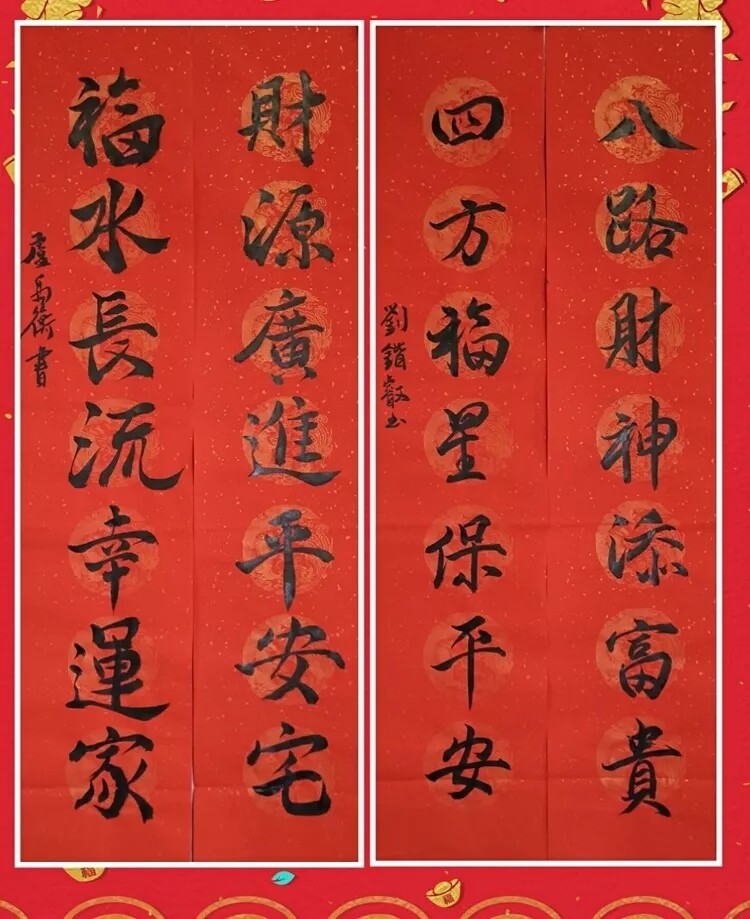 八路財神添富貴
四方福星保平安
劉鍇叡书
財源廣進平安宅
福水長流幸運家
盧禹衡書
福
福